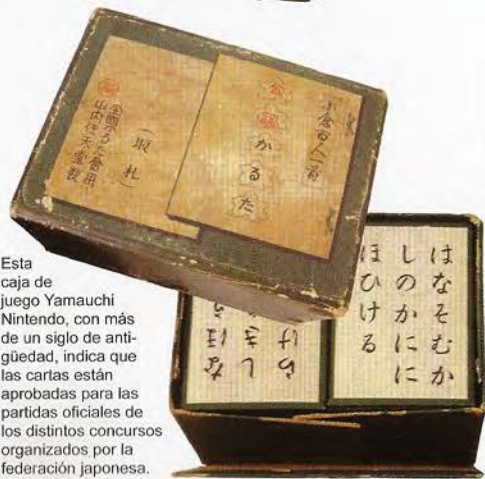 小倉百人一首
公認かるた
(取札)
全國かるた會用
山内任天堂製
はなそむか
しのかにに
ほひける
なほう
しき
らけ
Esta
caja de
juego Yamauchi
Nintendo, con más
de un siglo de anti-
güedad, indica que
las cartas están
aprobadas para las
partidas oficiales de
los distintos concursos
organizados por la
federación japonesa.